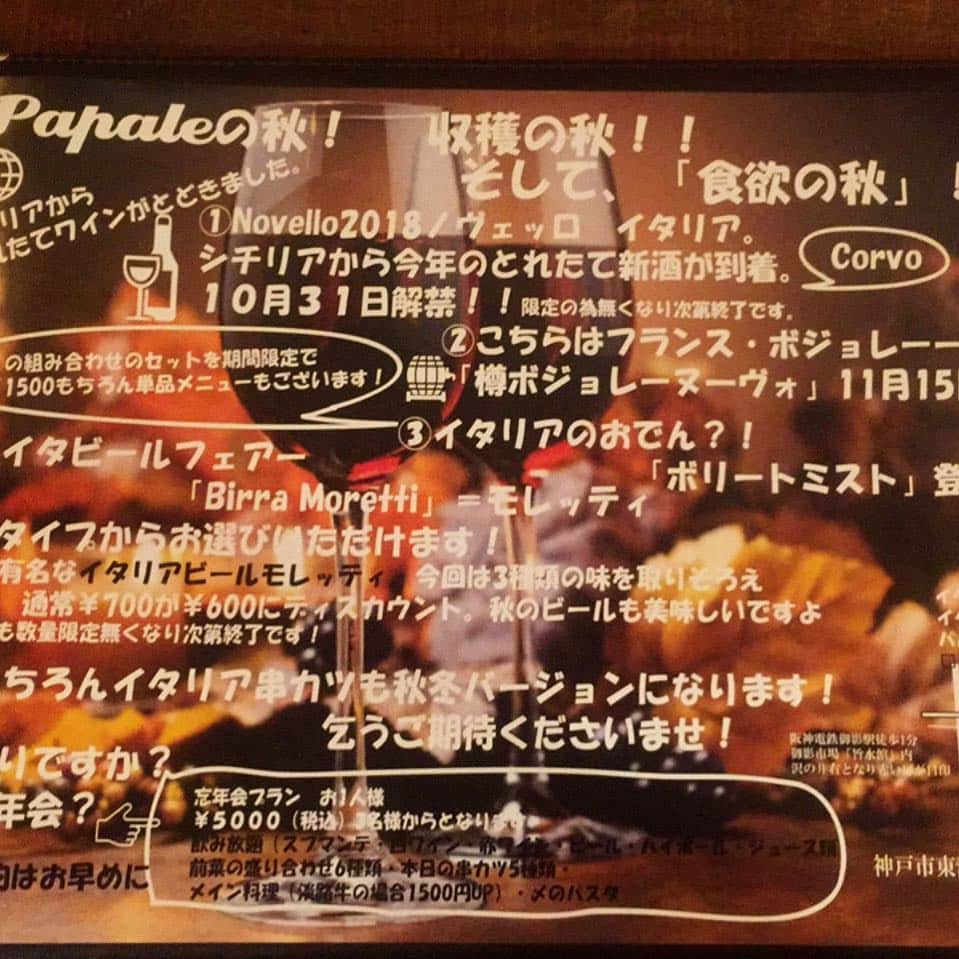 Papaleの秋！　収穫の秋！！
そして、「食欲の秋」！
リアから
れたてワインがとどきました。
①Novello2018ノヴェッロ　イタリア。
シチリアから今年のとれたて新酒が到着。
Corvo
10月31日解禁！！限定の為無くなり次第終了です。
②こちらはフランス・ボジョレー
「樽ボジョレーヌーヴォ」11月15
の組み合わせのセットを期間限定で
1500もちろん単品メニューもございます！
③イタリアのおでん？！
「ボリートミスト」登
イタビールフェアー
「Birra Moretti」＝モレッティ
タイプからお選びいただけます！
有名なイタリアビールモレッティ　今回は3種類の味を取りそろえ
通常￥700が￥600にディスカウント。秋のビールも美味しいですよ
も数量限定無くなり次第終了です！
ちろんイタリア串カツも秋冬バージョンになります！
乞うご期待くださいませ！
りですか？
年会？
約はお早めに
忘年会プラン　お1人様
￥5000（税込）3名様からとなります
飲み放題（スプマンテ・白ワイン・赤ワイン・ビール・ハイボール・ジュース類
前菜の盛り合わせ6種類・本日の串カツ5種類・
メイン料理（淡路牛の場合1500円UP）・〆のパスタ
阪神電鉄御影駅徒歩1分
御影市場「旨水館」内
沢の井右となり赤い扉が目印
神戸市東